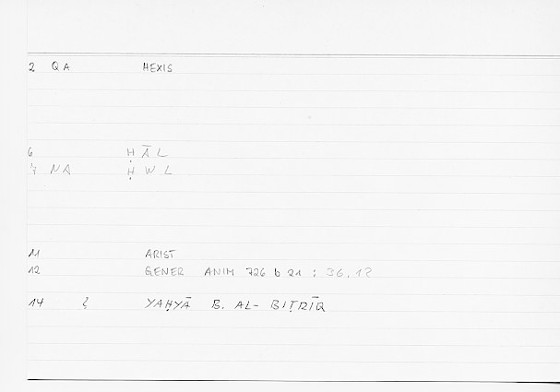 2 QA HEXIS
6 ḤĀL
7 NA ḤWL
11 ARIST
12 GENER ANIM 726 b 21 : 36,12
14 YAḤYĀ B. AL-BIṬRĪQ